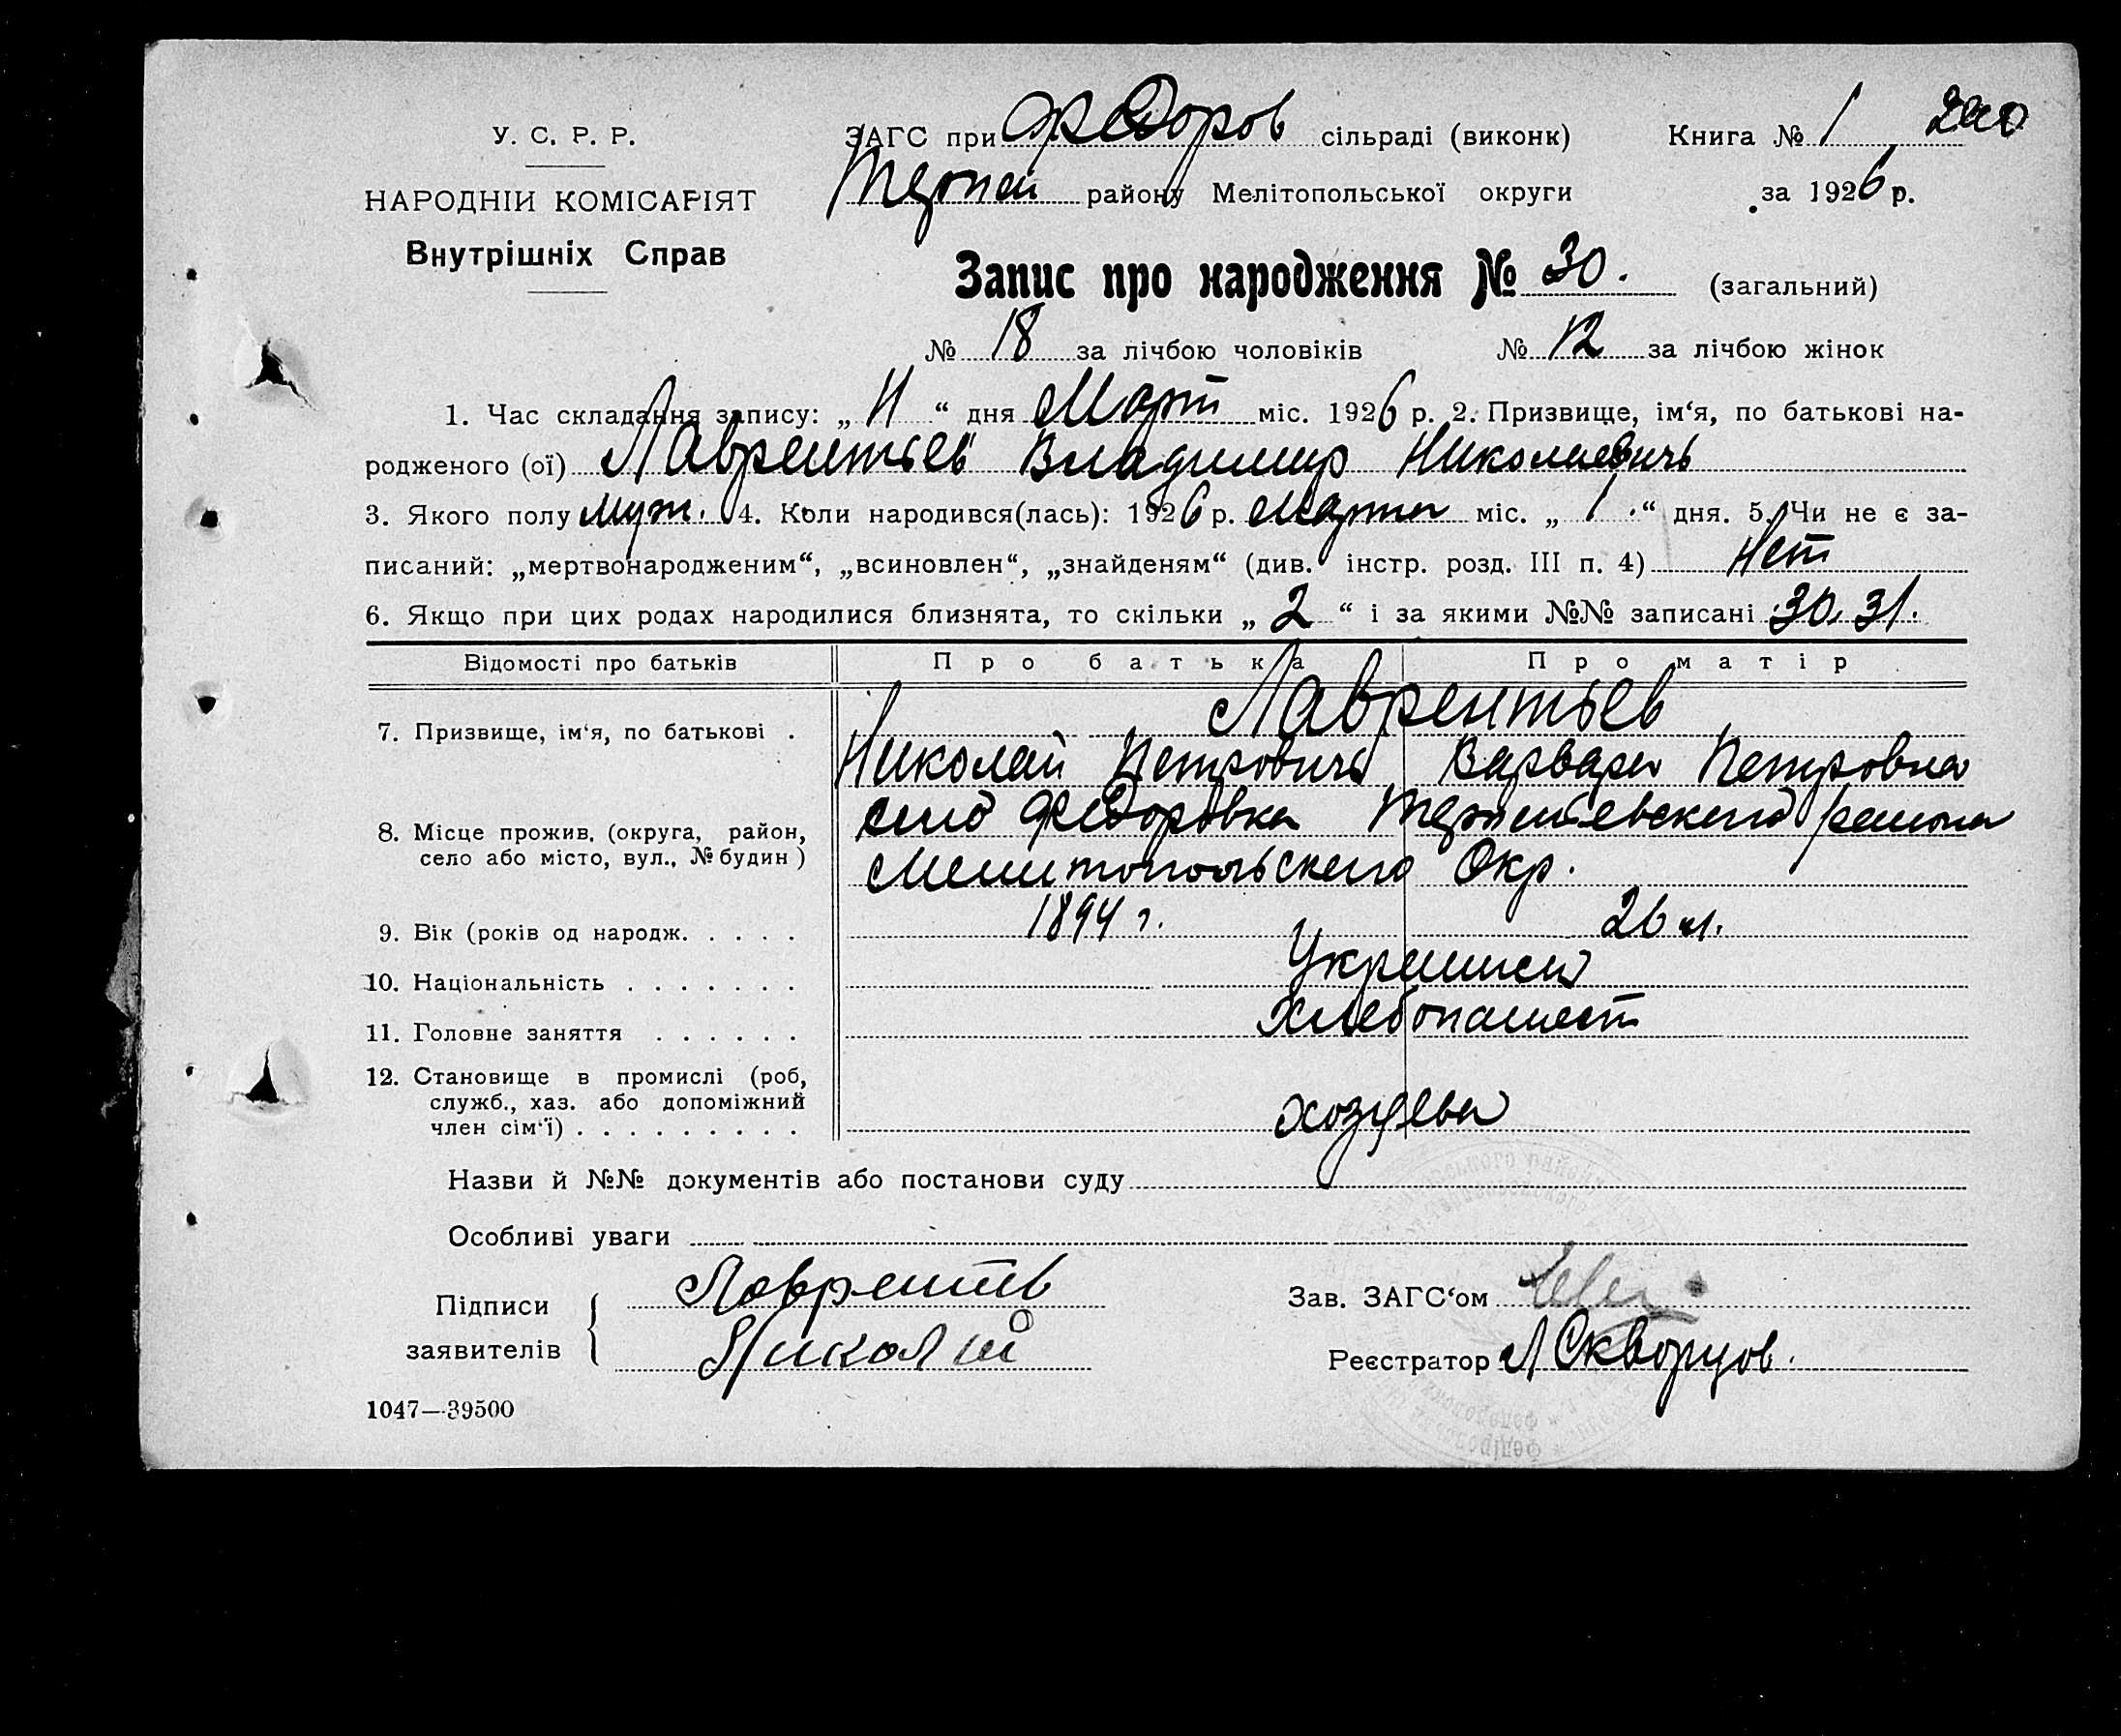 У. С. Р. Р.
НАРОДНІЙ КОМІСАРІЯТ
Внутрішніх Справ
ЗАГС при Федоров сільраді (виконк) Книга № 1 240
Терпен району Мелітопольської округи за 1926 р.
Запис про народження № 30. (загальний)
№ 18 за лічбою чоловіків № 12 за лічбою жінок
1. Час складання запису: „ 11 “ дня Март міс. 1926 р. 2. Призвище, ім‘я, по батькові на-
родженого (ої) Лаврентьев Владимир Николаевичь
3. Якого полу муж. 4. Коли народився(лась): 1926 р. Марта міс. „ 1 “ дня. 5. Чи не є за-
писаний: „мертвонародженим“, „всиновлен“, „знайденям“ (див. інстр. розд. III п. 4) Нет
6. Якщо при цих родах народилися близнята, то скільки „ 2 “ і за якими №№ записані 30. 31.
Відомості про батьків Про батька Про матір
7. Призвище, ім‘я, по батькові . Лаврентьев
Николай Петровичь Варвара Петровна
8. Місце прожив. (округа, район, село або місто, вул., № будин ) село Федоровка Терпеньевского района
Мелитопольского Окр.
9. Вік (років од народж. . . . . 1894 г. 26 л.
10. Національність . . . . . . . Украинцы
11. Головне заняття . . . . . . Хлебопашест
12. Становище в промислі (роб,
служб., хаз. або допоміжний
член сім‘ї) . . . . . . . . . хозяева
Назви й №№ документів або постанови суду
Особливі уваги
Підписи заявителів { Лаврентев
Николай
Зав. ЗАГС‘ом
Реєстратор Л Скворцов.
1047—39500